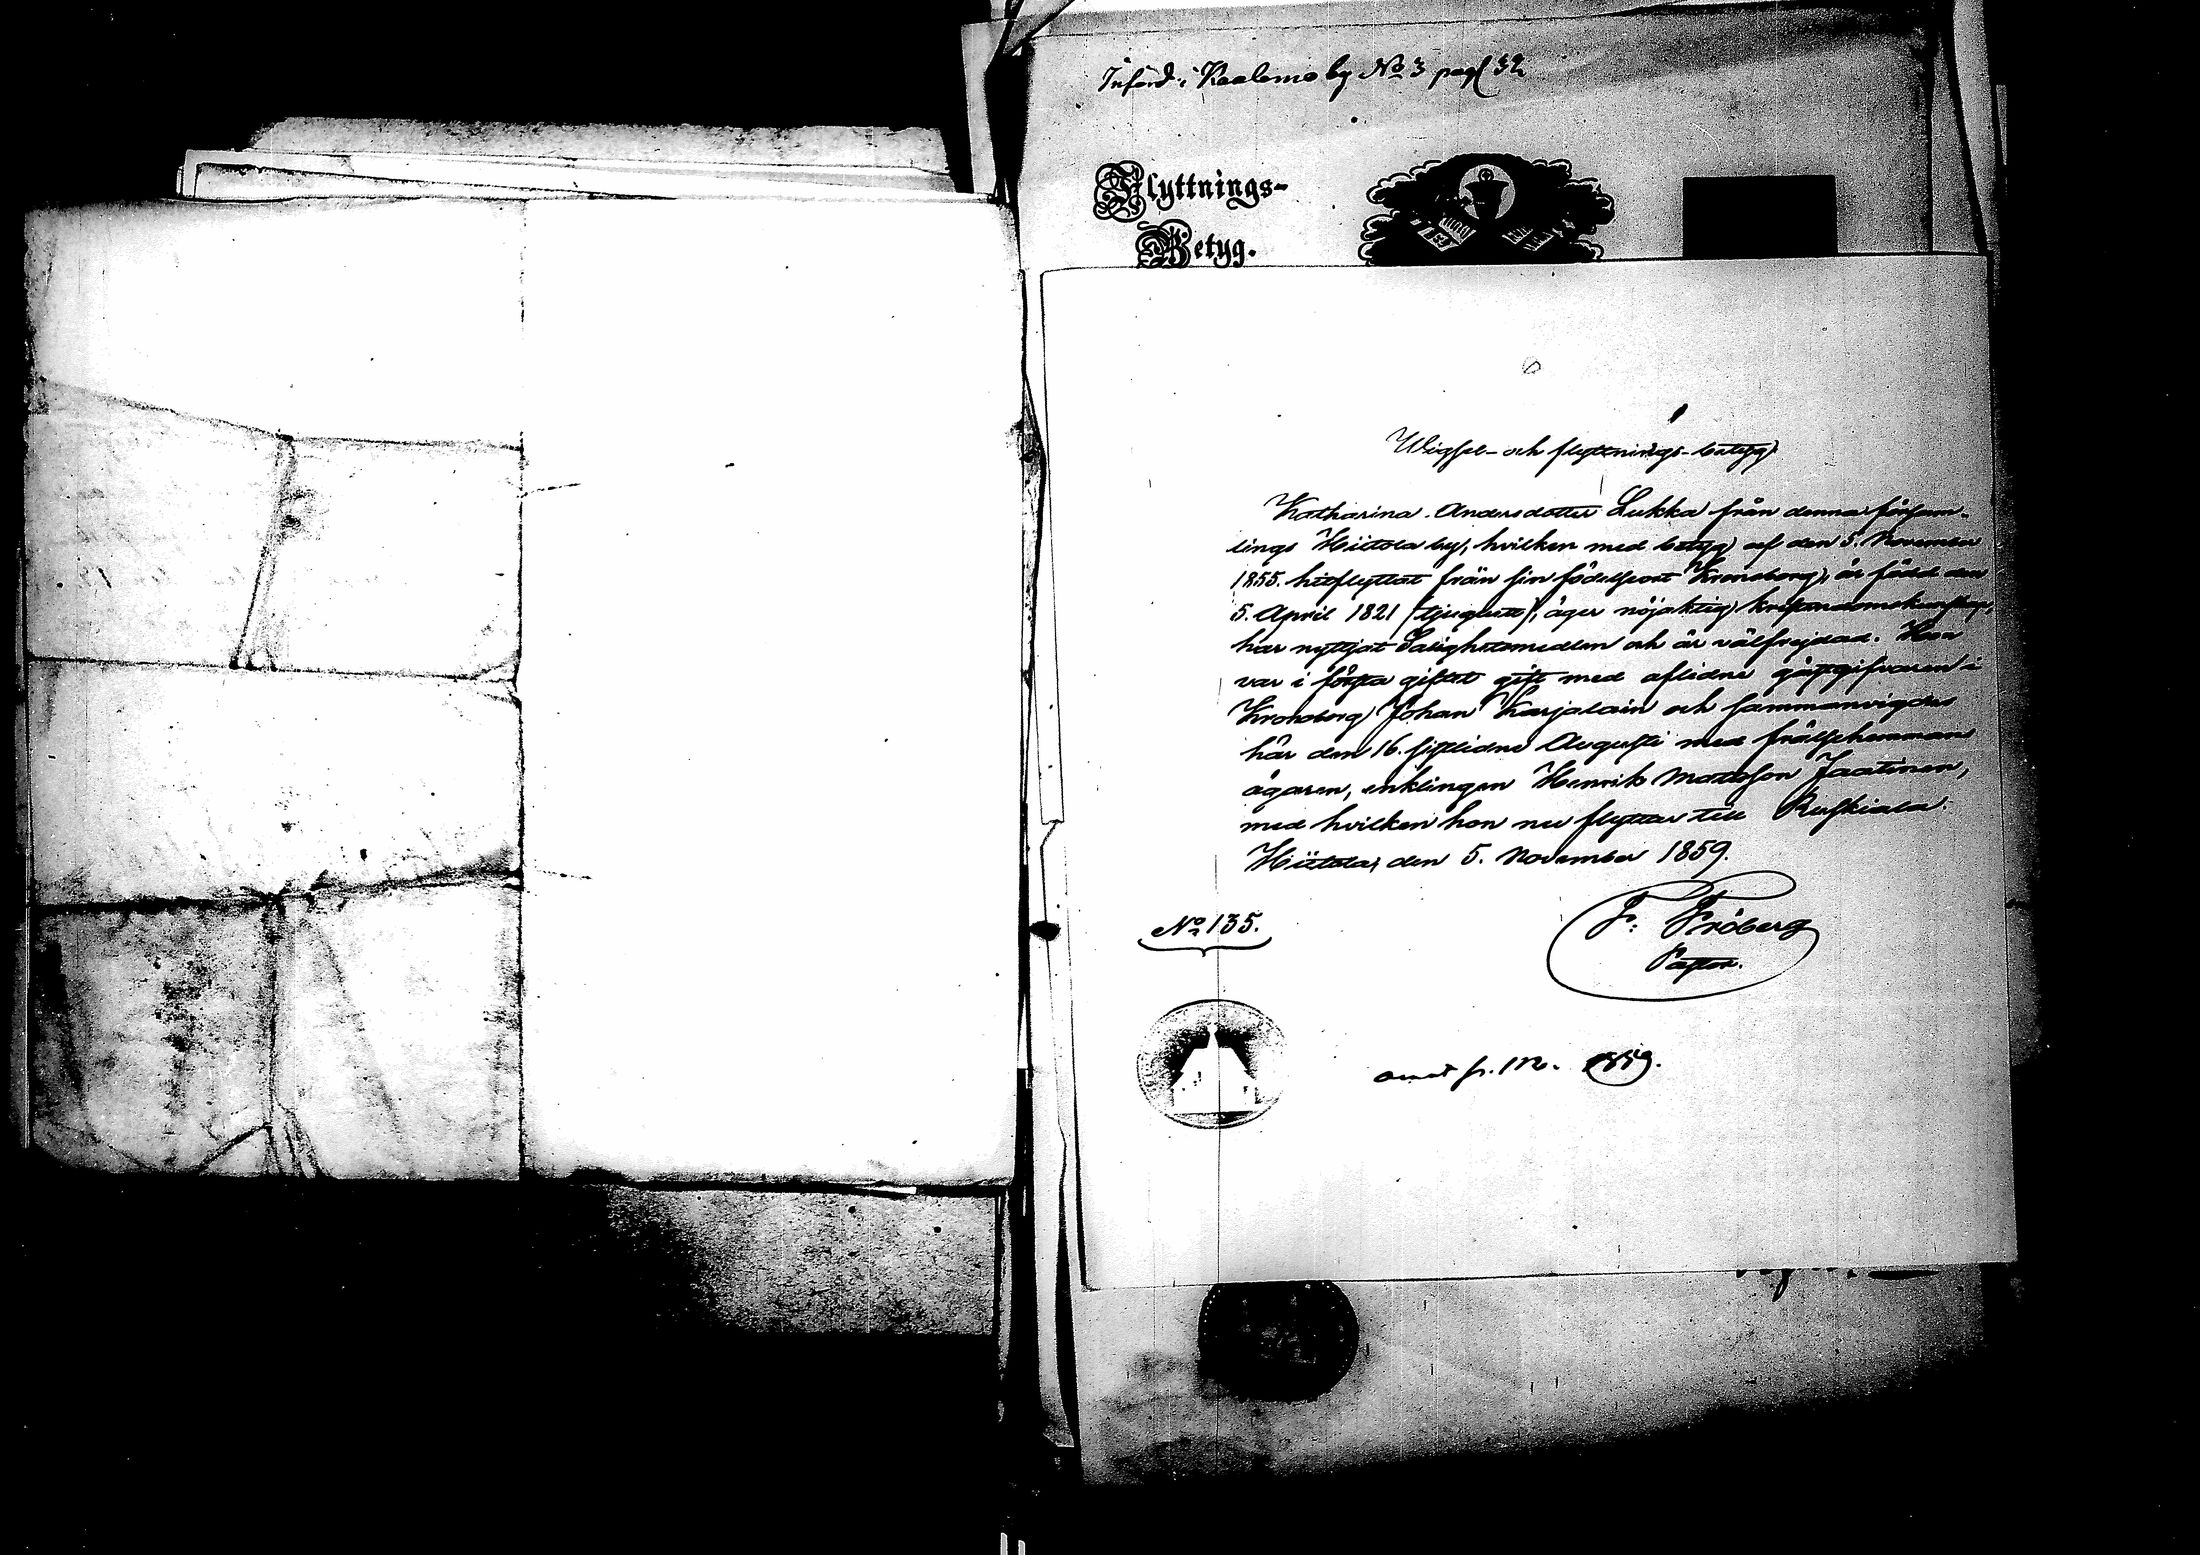 Införd i Kaalamo by No 3 pag 32
Flyttnings-
Betyg.
Wigsel- och flyttnings-betyg.
Katharina Andersdotter Lukka från denna försam-
lings Hiitola by, hvilken med betyg af den 5. November
1855. hitflyttat från sin födelseort Kronoborg, är född den
5. April 1821 (tjuguett), äger nöjaktig kristendomskunskap,
har nyttjat Salighetsmedlen och är välfrejdad. Hon
var i första giftet gift med aflidne gästgifvaren i
Kronoborg Johan Karjalain och sammanvigdes
här den 16. sistlidne Augusti med frälsehemmans
ägaren, enklingen Henrik Mattsson Jaatinen,
med hvilken hon nu flyttar till Ruskiala.
Hiitola, den 5. November 1859.
No 135.
F: Fröberg
Pastor.
1859.